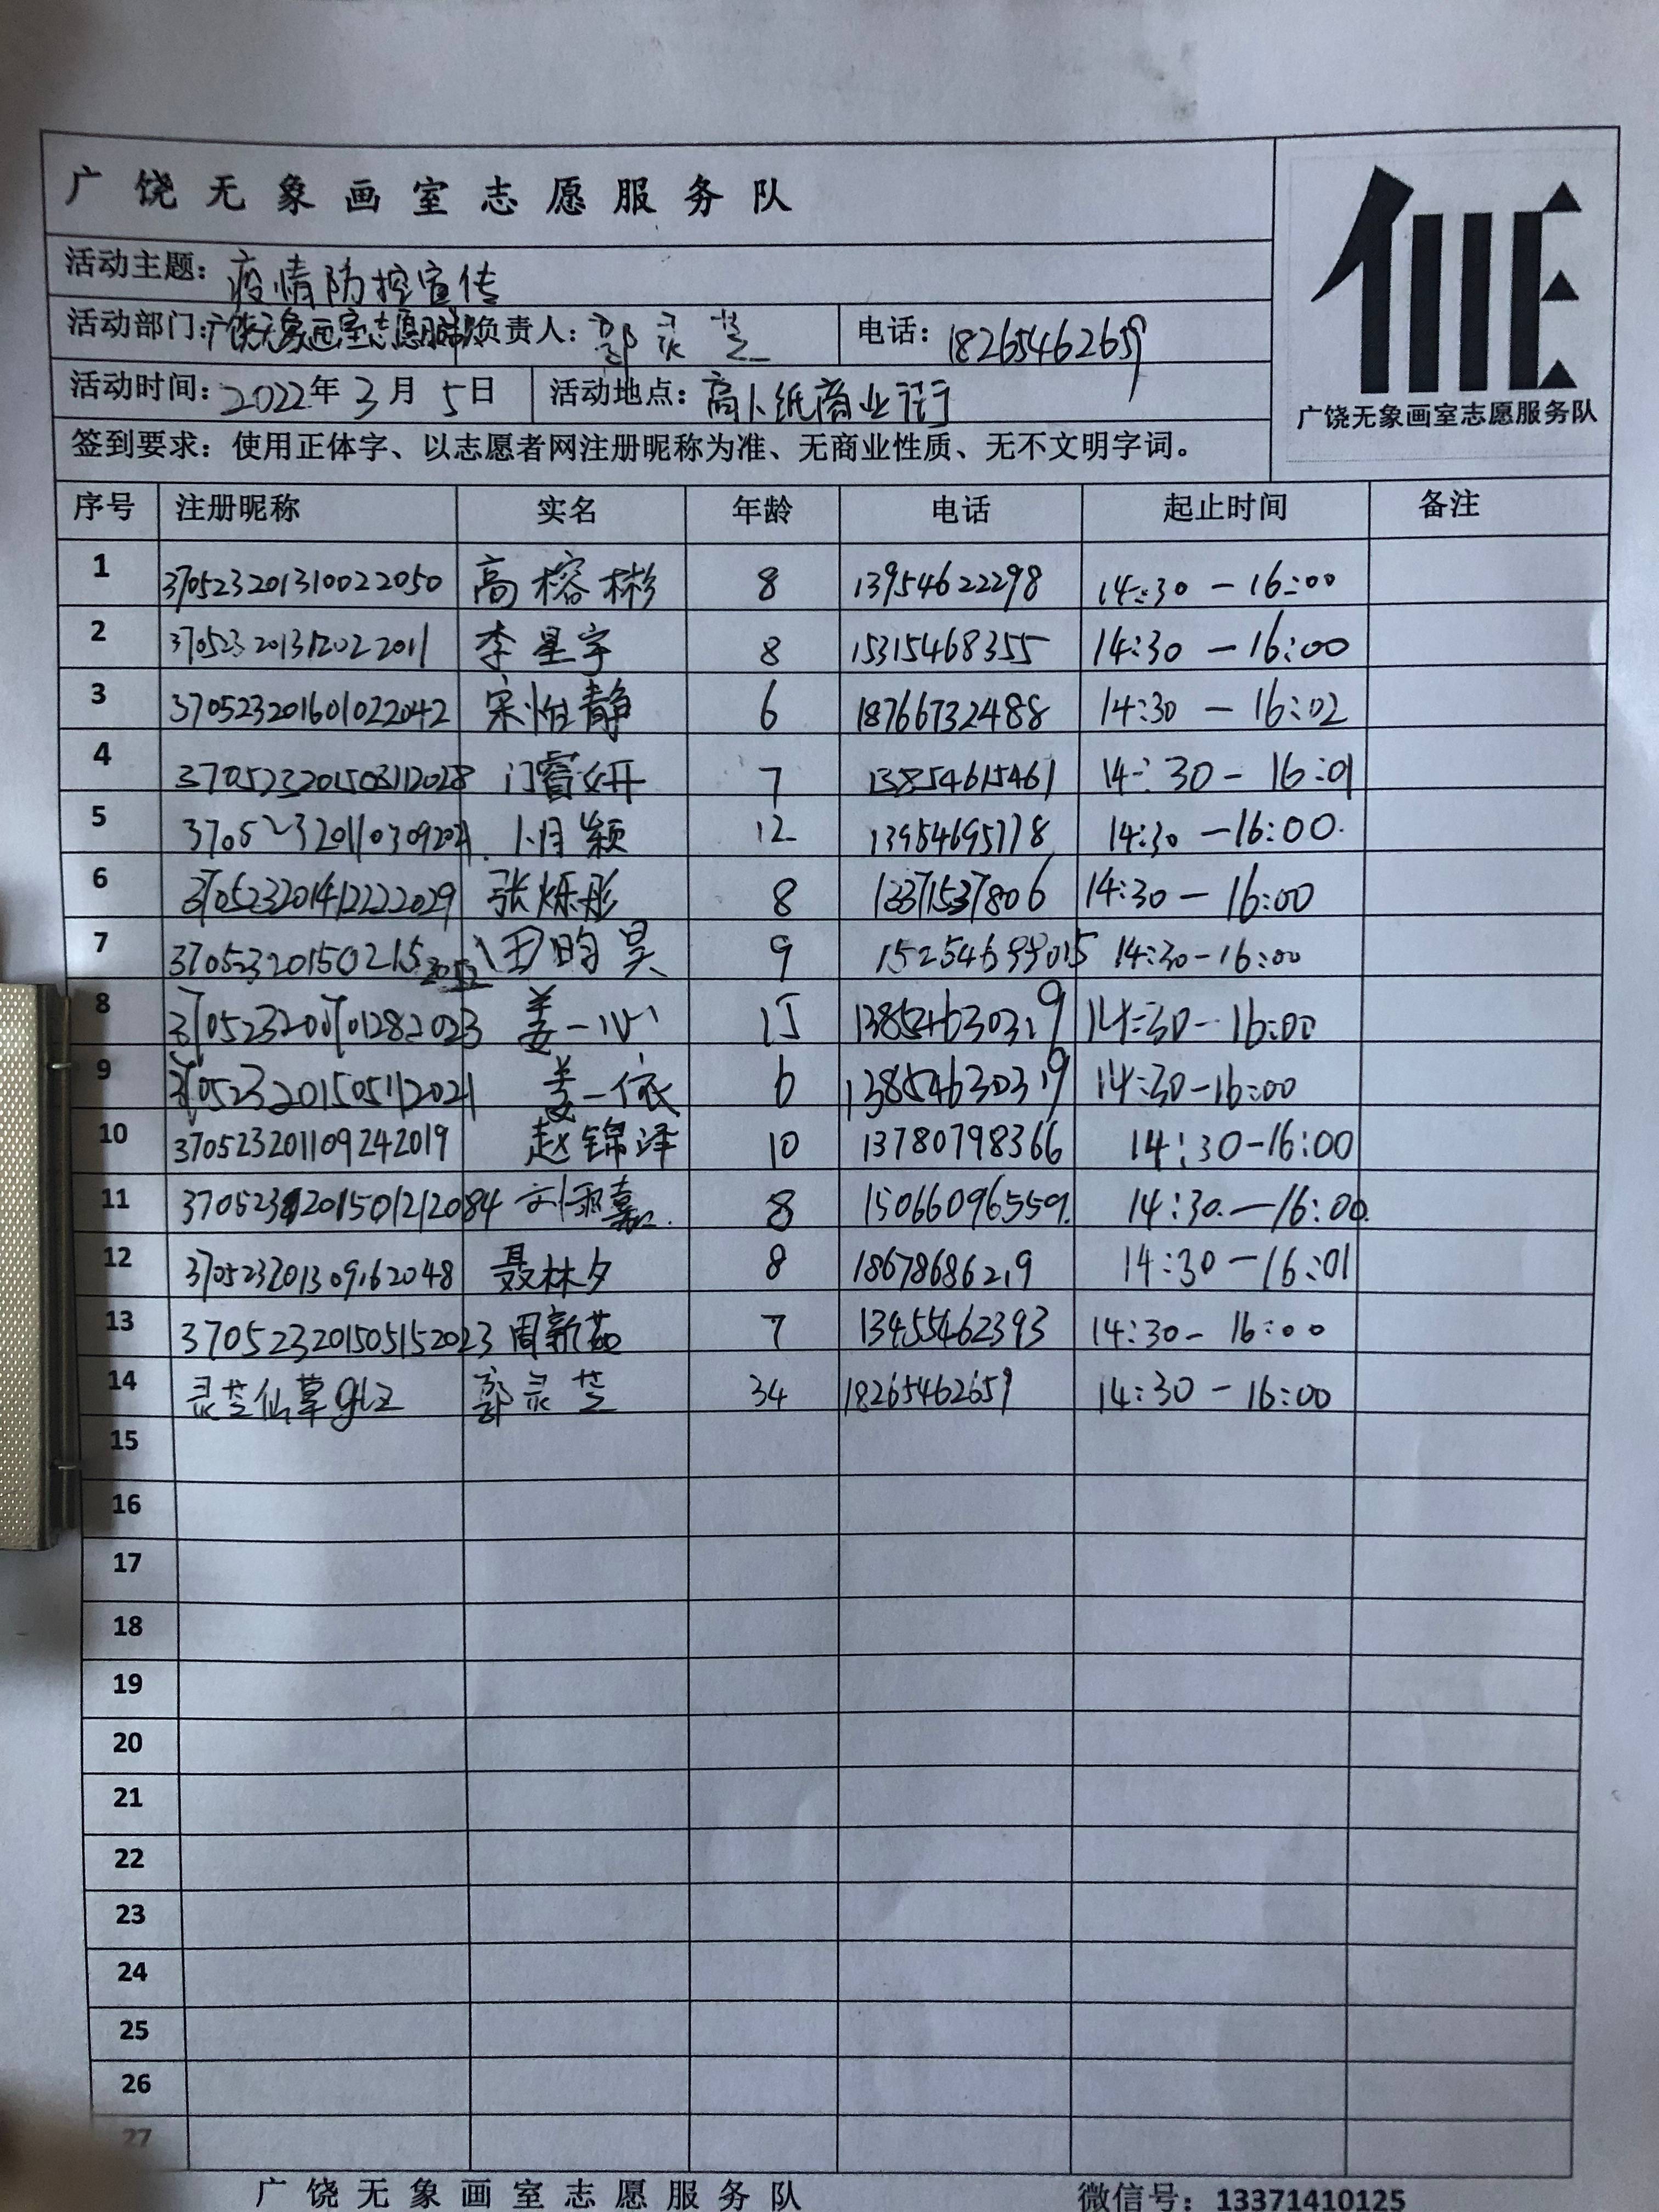 广饶无象画室志愿服务队
活动主题：疫情防控宣传
活动部门：广饶无象画室志愿服务队 负责人：郭灵芝 电话：18265462659
活动时间：2022年3月5日 活动地点：商业街
签到要求：使用正体字、以志愿者网注册昵称为准、无商业性质、无不文明字词。
广饶无象画室志愿服务队
序号 注册昵称 实名 年龄 电话 起止时间 备注
1 370523201310022050 高榕彬 8 13954622298 14:30－16:00
2 370523201312022011 李星宇 8 15315468355 14:30－16:00
3 370523201601022042 宋怡静 6 18766732488 14:30－16:02
4 370523201508112028 门睿妍 7 13854615461 14:30－16:01
5 颖 12 14:30－16:00
6 370523201412222029 张烁彤 8 13371537806 14:30－16:00
7 田昀昊 9 14:30-16:00
8 370523200701282023 姜一心 15 13854630319 14:30-16:00
9 370523201505112021 姜一依 6 13854630319 14:30-16:00
10 370523201109242019 赵锦泽 10 13780798366 14:30-16:00
11 嘉 8 15066096559 14:30－16:00
12 370523201309162048 聂林夕 8 18678686219 14:30－16:01
13 370523201505152023 周新茹 7 13455462393 14:30-16:00
14 灵芝仙草glz 郭灵芝 34 18265462659 14:30－16:00
15
16
17
18
19
20
21
22
23
24
25
26
27
广饶无象画室志愿服务队 微信号：13371410125